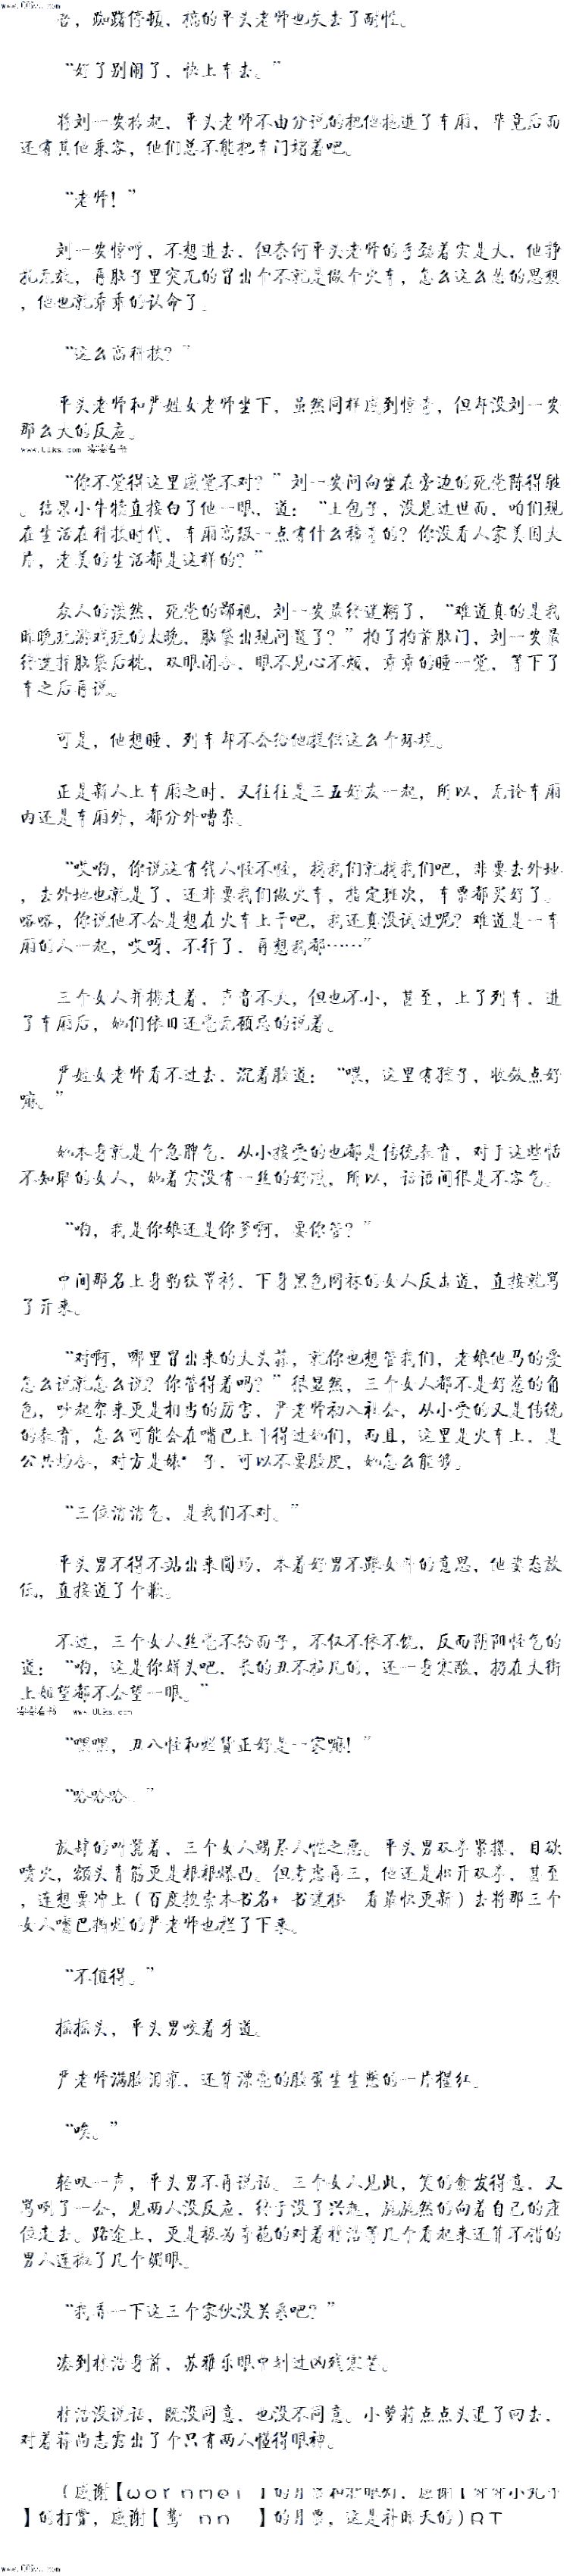 老，踟蹰停顿，搞的平头老师也失去了耐性。
“好了别闹了，快上车去。”
将刘一安拎起，平头老师不由分说的把他拖进了车厢，毕竟后面
还有其他乘客，他们总不能把车门堵着吧。
“老师！”
刘一安惊呼，不想进去，但奈何平头老师的手劲着实是大，他挣
扎无效，再脑子里突兀的冒出个不就是做个火车，怎么这么怂的思想
，他也就乖乖的认命了。
“这么高科技？”
平头老师和严姓女老师坐下，虽然同样感到惊奇，但却没刘一安
那么大的反应。
“你不觉得这里感觉不对？”刘一安问向坐在旁边的死党陈得胜
。结果小牛犊直接白了他一眼，道：“土包子，没见过世面，咱们现
在生活在科技时代，车厢高级一点有什么稀奇的？你没看人家美国大
片，老美的生活都是这样的？”
众人的淡然，死党的鄙视，刘一安最终迷糊了，“难道真的是我
昨晚玩游戏玩的太晚，脑袋出现问题了？”拍了拍前脑门，刘一安最
终选择脑袋后枕，双眼闭合，眼不见心不烦，乖乖的睡一觉，等下了
车之后再说。
可是，他想睡，列车却不会给他提供这么个环境。
正是新人上车厢之时，又往往是三五好友一起，所以，无论车厢
内还是车厢外，都分外嘈杂。
“哎哟，你说这有钱人怪不怪，找我们就找我们吧，非要去外地
，去外地也就是了，还非要我们做火车，指定班次，车票都买好了。
咯咯，你说他不会是想在火车上干吧，我还真没试过呢？难道是一车
厢的人一起，哎呀，不行了，再想我都……”
三个女人并排走着，声音不大，但也不小，甚至，上了列车，进
了车厢后，她们依旧还毫无顾忌的说着。
严姓女老师看不过去，沉着脸道：“喂，这里有孩子，收敛点好
嘛。”
她本身就是个急脾气，从小接受的也都是传统教育，对于这些恬
不知耻的女人，她着实没有一丝的好感，所以，话语间很是不客气。
“哟，我是你娘还是你爹啊，要你管？”
中间那名上身豹纹罩衫，下身黑色网袜的女人反击道，直接就骂
了开来。
“对啊，哪里冒出来的大头蒜，就你也想管我们，老娘他马的爱
怎么说就怎么说？你管得着吗？”很显然，三个女人都不是好惹的角
色，吵起架来更是相当的厉害，严老师初入社会，从小受的又是传统
的教育，怎么可能会在嘴巴上斗得过她们，而且，这里是火车上，是
公共场合，对方是婊* 子，可以不要脸皮，她怎么能够。
“三位消消气，是我们不对。”
平头男不得不站出来圆场，本着好男不跟女斗的意思，他姿态放
低，直接道了个歉。
不过，三个女人丝毫不给面子，不仅不依不饶，反而阴阳怪气的
道：“哟，这是你姘头吧，长的丑不拉几的，还一身寒酸，扔在大街
上姐望都不会望一眼。”
“嘿嘿，丑八怪和烂货正好是一家嘛！”
“哈哈哈。”
放肆的叫嚣着，三个女人竭尽人性之恶。平头男双拳紧握，目欲
喷火，额头青筋更是根根爆凸。但考虑再三，他还是松开双拳，甚至
，连想要冲上（百度搜索本书名+ 书建楼 看最快更新）去将那三个
女人嘴巴撕烂的严老师也拦了下来。
“不值得。”
摇摇头，平头男咬着牙道。
严老师满脸泪痕，还算漂亮的脸蛋生生憋的一片猩红。
“唉。”
轻叹一声，平头男不再说话。三个女人见此，笑的愈发得意，又
骂咧了一会，见两人没反应，终于没了兴趣，施施然的向着自己的座
位走去。路途上，更是极为奇葩的对着林浩等几个看起来还算不错的
男人连抛了几个媚眼。
“我弄一下这三个家伙没关系吧？”
凑到林浩身前，苏雅乐眼中划过凶残寒芒。
林浩没说话，既没同意，也没不同意。小萝莉点点头退了回去，
对着蒋尚志露出了个只有两人懂得眼神。
（感谢【wornmei 】的月票和
】的打赏，感谢【 nn 】的月票，这是补昨天的）RT